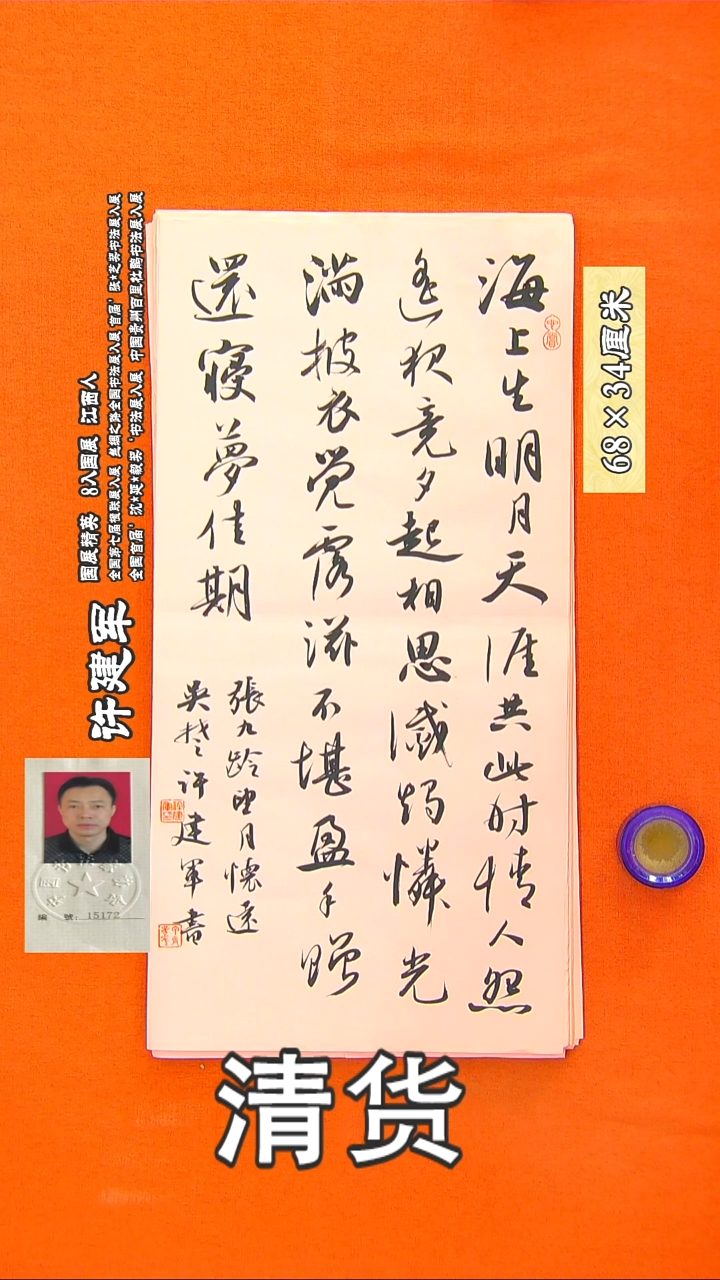 海上生明月天涯共此时情人怨
遥夜竟夕起相思滅烛憐光
满披衣觉露滋不堪盈手赠
還寝夢佳期
張九龄望月懷遠
许建军書
68×34厘米
许建军
国展精英 8入国展 江西人
全国第七届楹联展入展 丝绸之路全国书法展入展 首届'张*芝奖书法展入展
全国首届'沈*延*毅奖'书法展入展 中国贵州百里杜鹃书法展入展
编 號:15172
清货